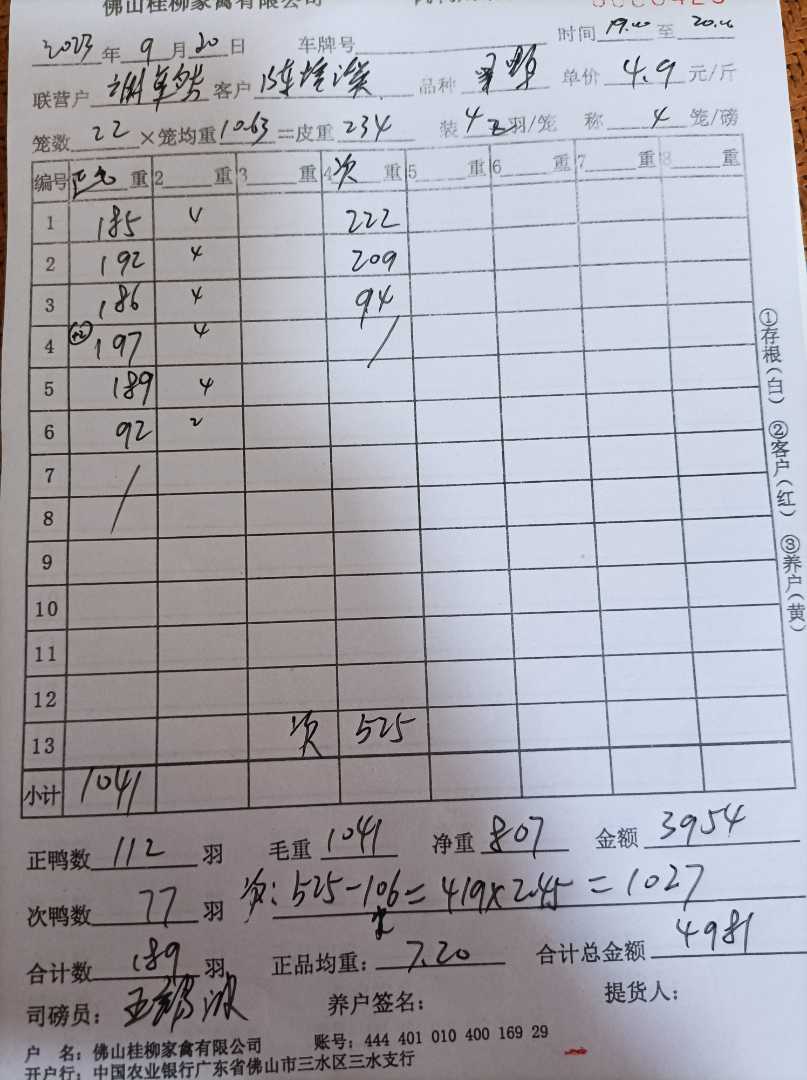 佛山桂柳家禽有限公司
2023年9月20日 车牌号 时间19.40至20.10
联营户 客户 陈 品种 单价4.9元/斤
笼数22×笼均重10.63=皮重234 装 羽/笼 称4笼/磅
编号 正毛重 2 重 3 重 4次重 5 重 6 重 7 重 8 重
1 185 4 222
2 192 4 209
3 186 4 94
4 +2 197 4 /
5 189 4
6 92 2
7 /
8
9
10
11
12
13 次 525
小计 1041
①存根(白) ②客户(红) ③养户(黄)
正鸭数112羽 毛重1041 净重807 金额3954
次鸭数77羽 次:525-106=419×2.45=1027
合计数189羽 正品均重:7.20 合计总金额4981
司磅员:王 波 养户签名: 提货人:
户 名:佛山桂柳家禽有限公司 账号:444 401 010 400 169 29
开户行:中国农业银行广东省佛山市三水区三水支行